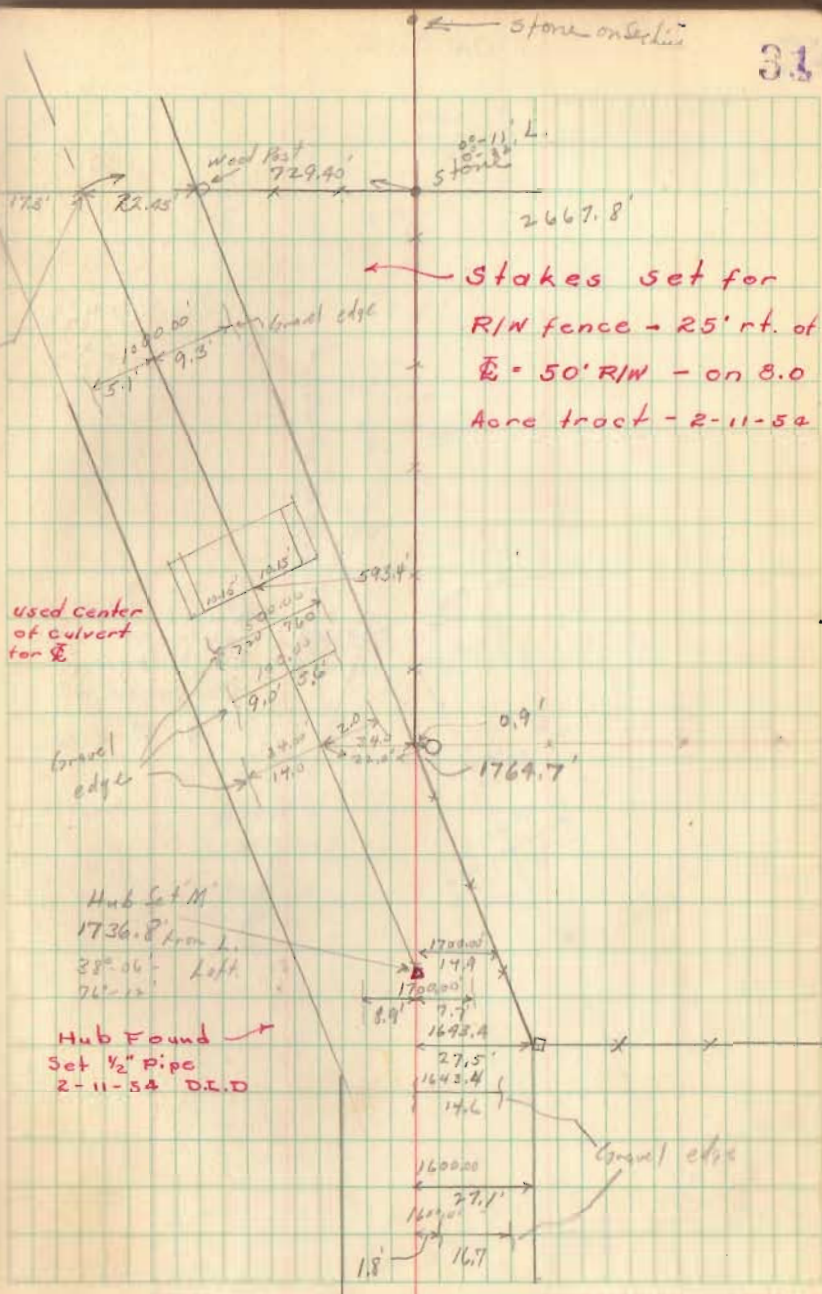 stone on Sec line
31
0°-11' L.
Wood Post
729.40'
Stone
17.5'
22.45'
2667.8'
Stakes set for
R/W fence - 25' rt. of
℄ = 50' R/W - on 8.0
Acre tract - 2-11-54
1000.00'
Gravel edge
5.1'
9.3'
593.4'
10.15'
10.15'
used center
of culvert
for ℄
500.00
7.20'
7.60'
100.00
9.0'
5.6'
0.9'
2.0
34.00'
34.0
14.0
22.0'
1764.7'
Gravel
edge
Hub Set "M"
1736.8' from L.
38°-06' - Left
76°-12'
1700.00'
14.9
1700.00'
8.9'
7.7'
Hub Found
Set ½" Pipe
2-11-54 D.L.D
1643.4
27.5'
1643.4'
14.6
Gravel edge
1600.00
27.1'
1600.0'
1.8'
16.7